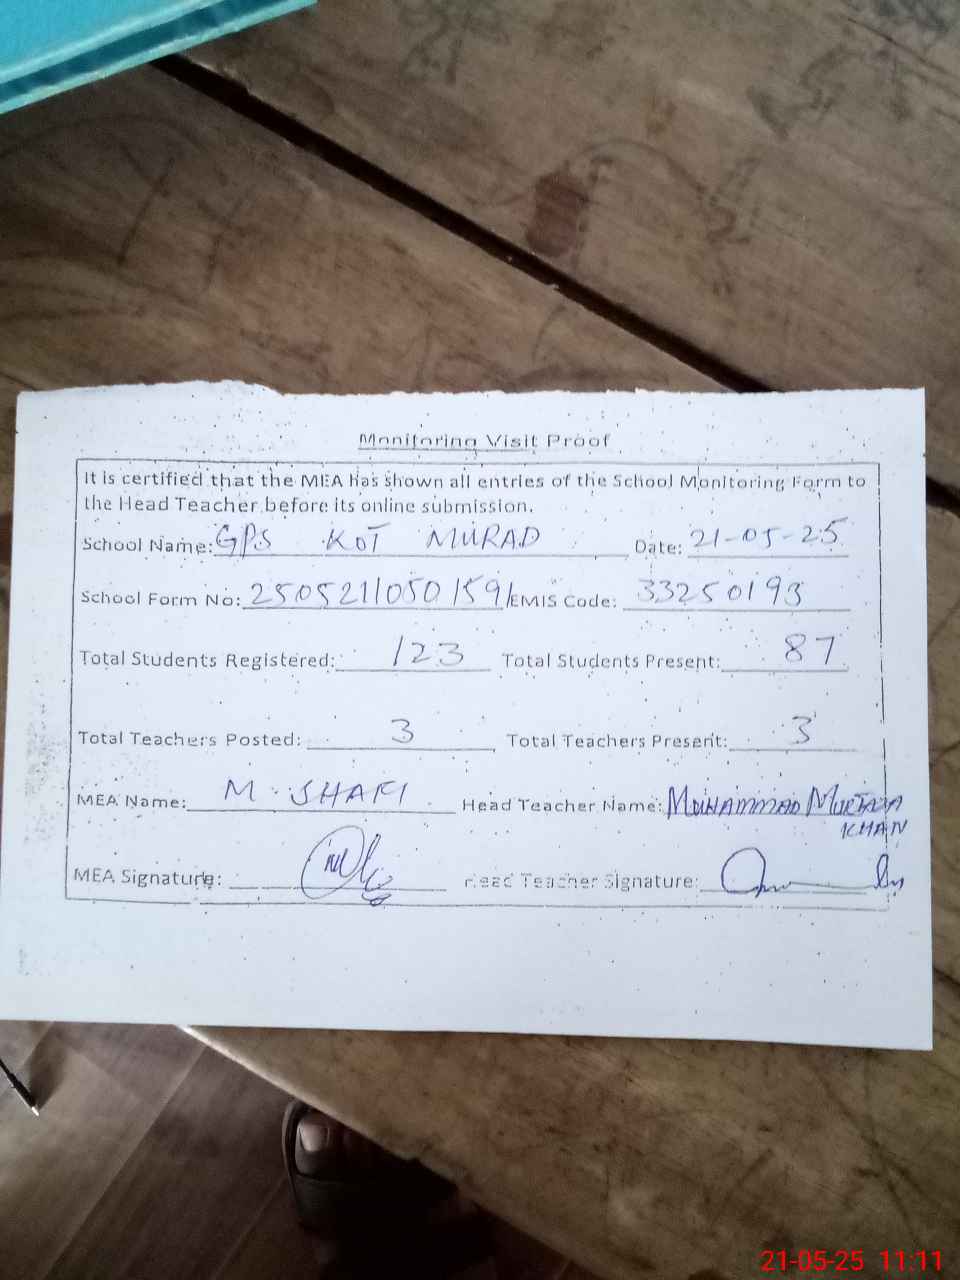 Monitoring Visit Proof
It is certified that the MEA has shown all entries of the School Monitoring Form to
the Head Teacher before its online submission.
School Name: GPS KOT MURAD Date: 21-05-25
School Form No: 250521105015 9/EMIS Code: 33250193
Total Students Registered: 123 Total Students Present: 87
Total Teachers Posted: 3 Total Teachers Present: 3
MEA Name: M. SHAFI Head Teacher Name: MUHAMMAD MURTAZA
KHAN
MEA Signature: Head Teacher Signature:
21-05-25 11:11